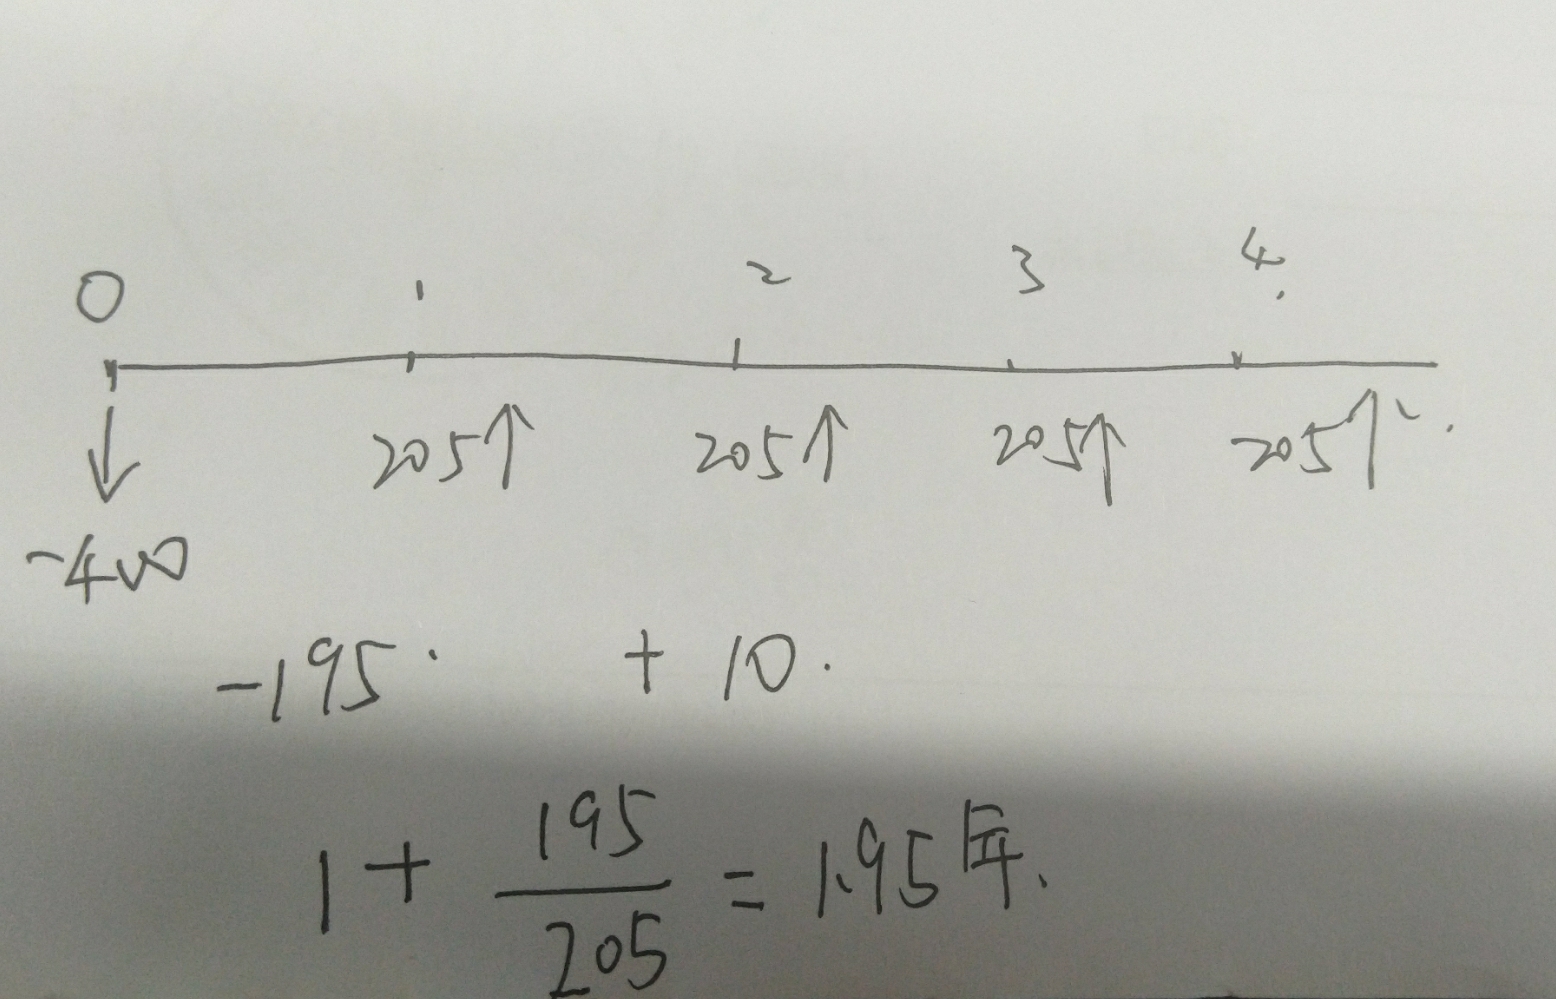 0 1 2 3 4.
205↑ 205↑ 205↑ 205↑
↓
-400
-195. + 10.
1 + 195/205 = 1.95年.